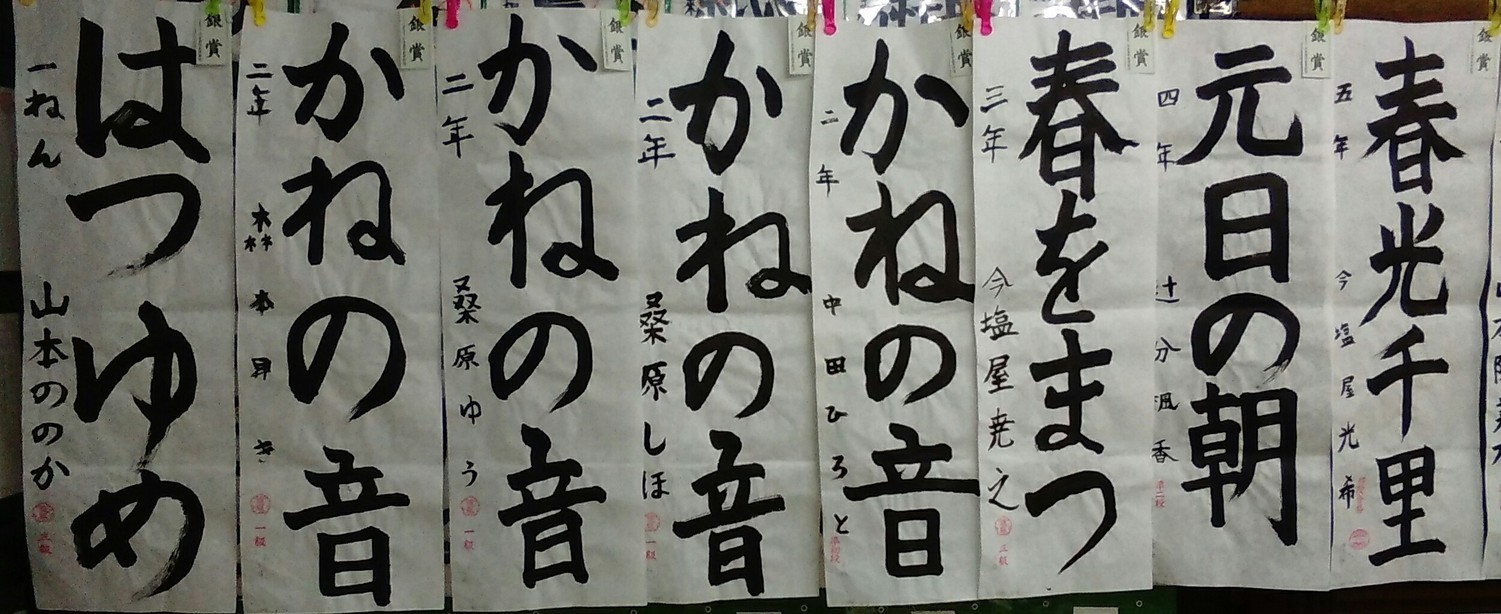 春光千里
五年 今塩屋光希
銀賞
元日の朝
四年 辻分凪香
銀賞
春をまつ
三年 今塩屋尭之
三級
銀賞
かねの音
二年 中田ひろと
準初段
銀賞
かねの音
二年 桑原しほ
一級
銀賞
かねの音
二年 桑原ゆう
一級
銀賞
かねの音
二年 森本昇き
一級
銀賞
はつゆめ
一ねん 山本ののか
銀賞